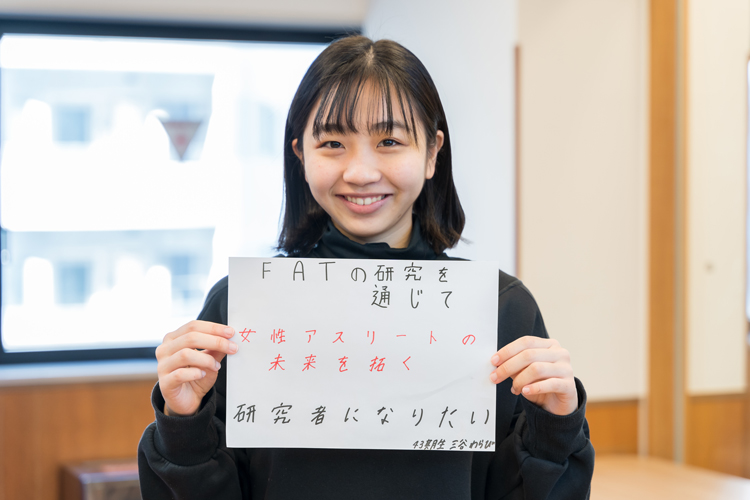 FATの研究を
通じて
女性アスリートの
未来を拓く
研究者になりたい
43期生 三谷わらび